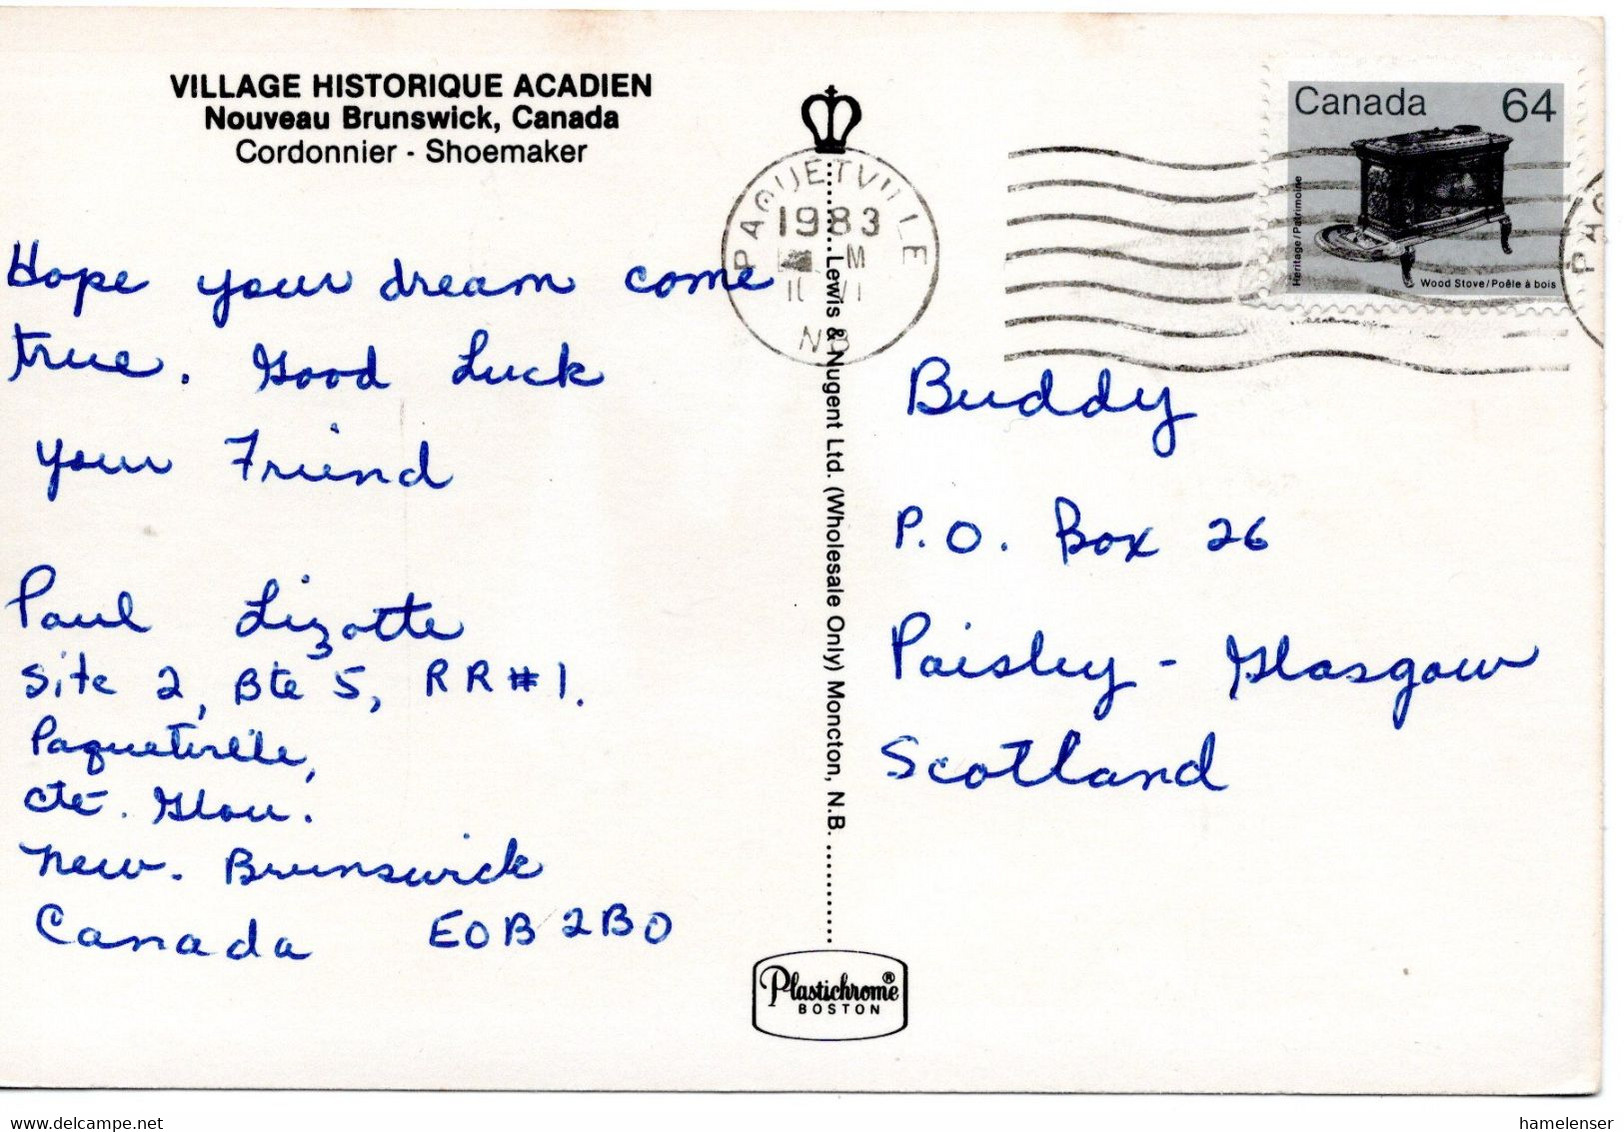 VILLAGE HISTORIQUE ACADIEN
Nouveau Brunswick, Canada
Cordonnier - Shoemaker
Hope your dream come
true. Good Luck
your Friend
Paul Lizotte
Site 2, Bte 5, RR#1.
Paquetville,
cté. Glou.
New. Brunswick
Canada E0B 2B0
PAQUETVILLE
1983
M
VI
NB
Lewis & Nugent Ltd. (Wholesale Only) Moncton, N.B.
Plastichrome®
BOSTON
Canada 64
Heritage/Patrimoine
Wood Stove/Poêle à bois
PAQ
Buddy
P.O. Box 26
Paisley - Glasgow
Scotland
delcampe.net
hamelenser